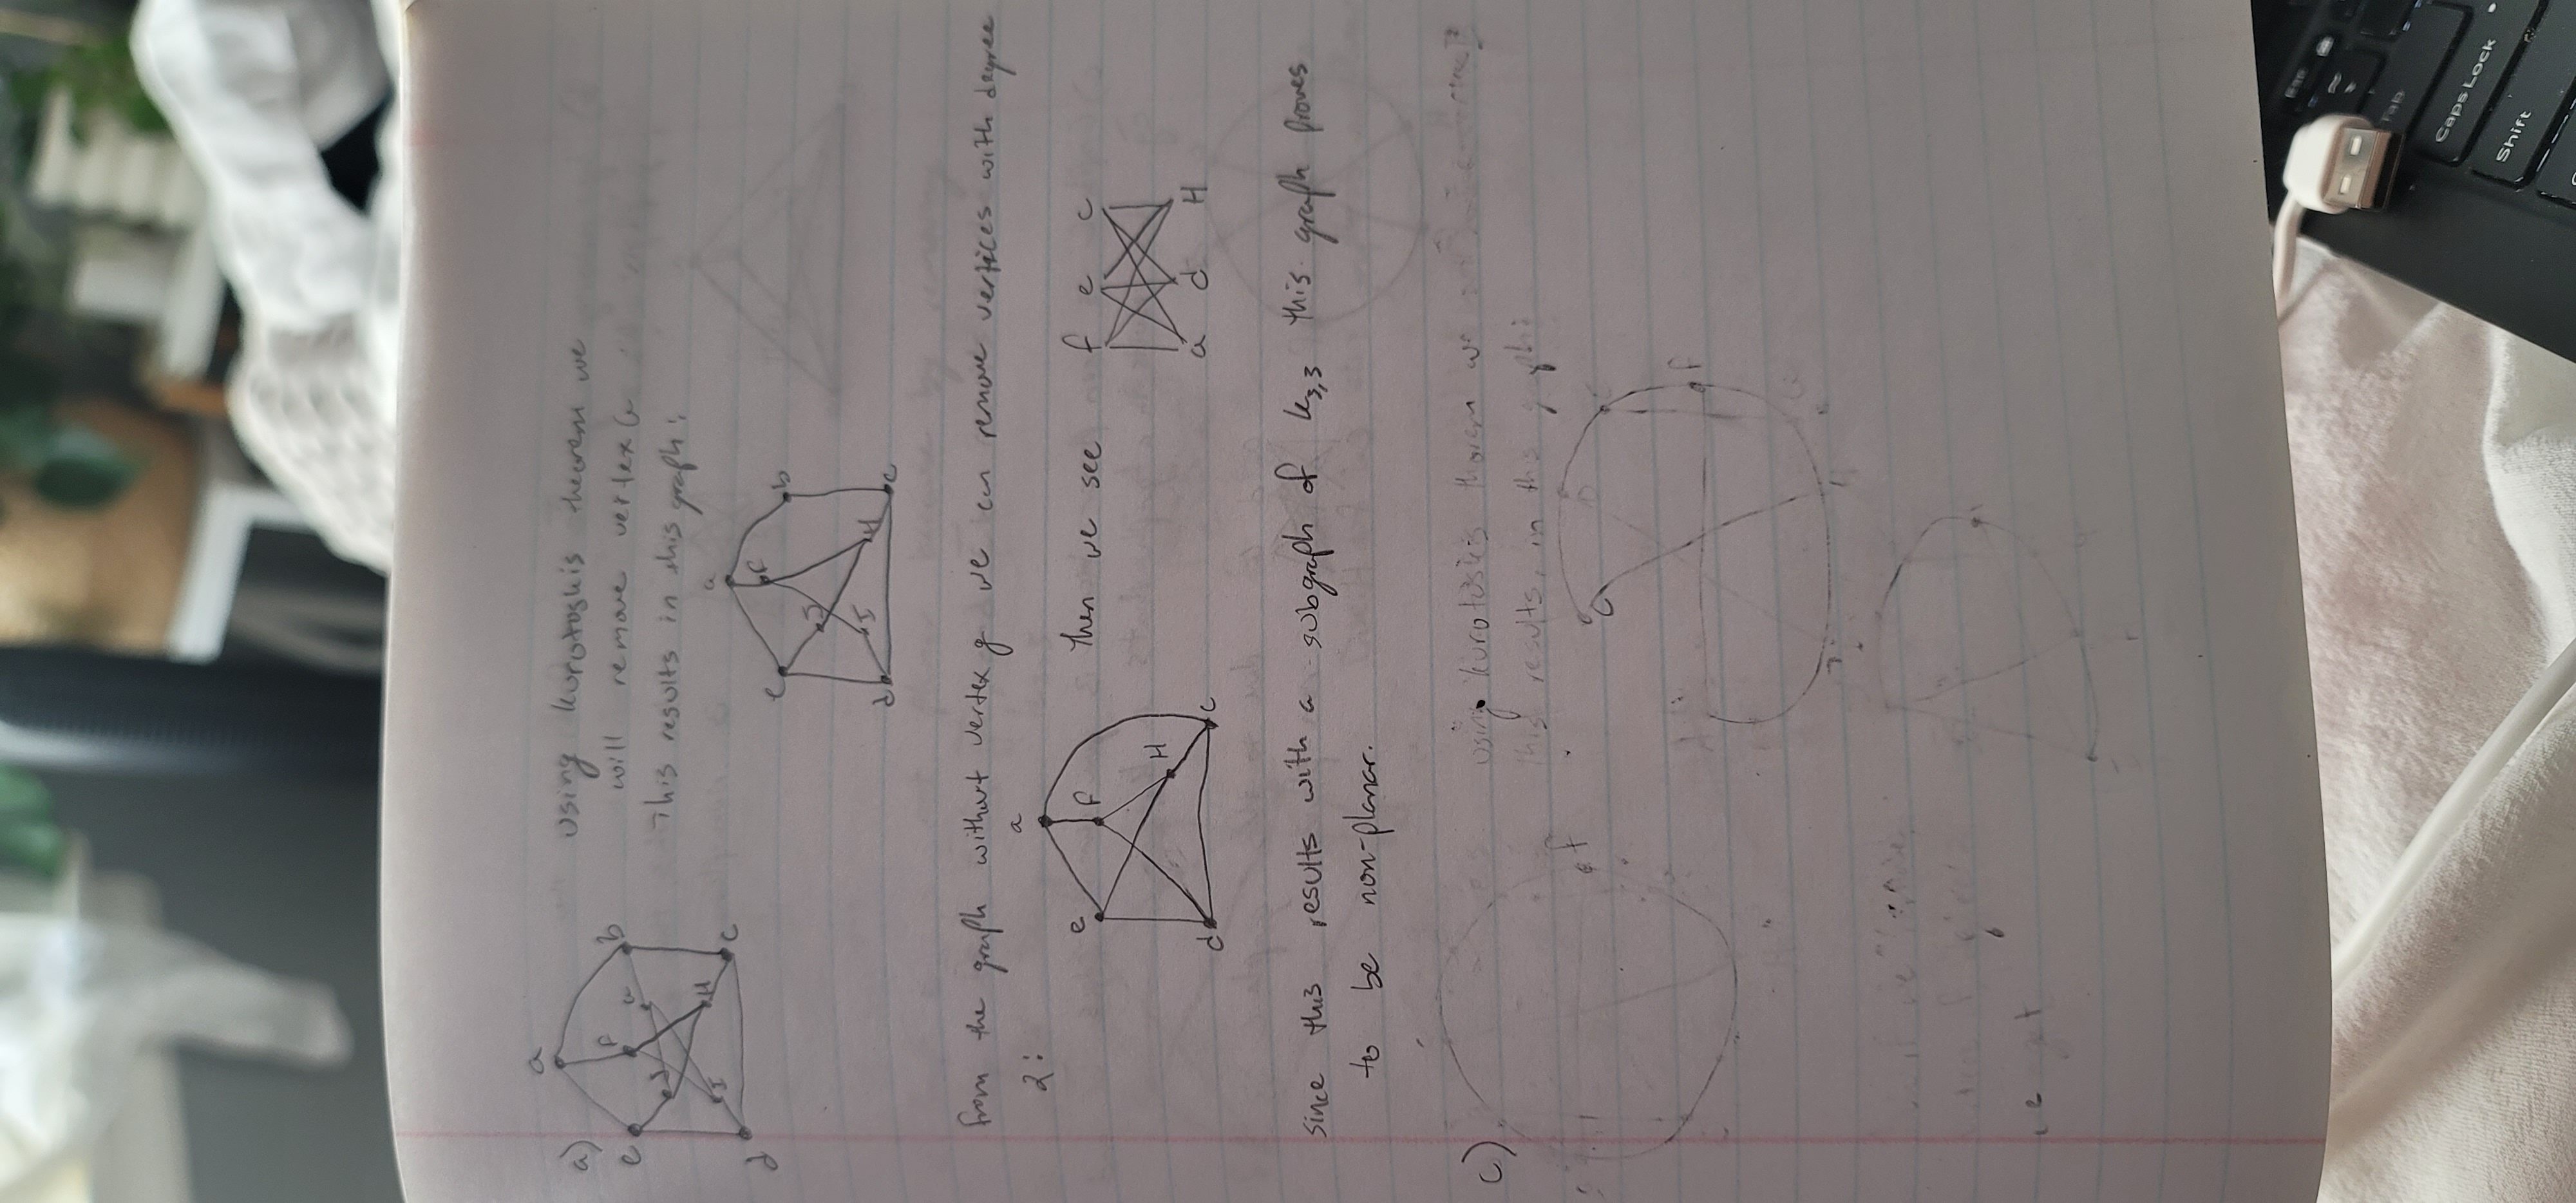 a)
a
e
F
b
G
J
I
H
d
c
using kurotoskis theorem we
will remove vertex G
This results in this graph:
a
e
F
b
J
I
H
d
c
from the graph without vertex g we can remove vertices with degree
2:
a
e
F
H
d
c
Then we see
f e c
a d H
since this results with a subgraph of K3,3 this graph proves
to be non-planar.
c)
f
using kurotoskis theorem we
this results, in this graph:
C
f
H
we get
Tab
Caps Lock
Shift